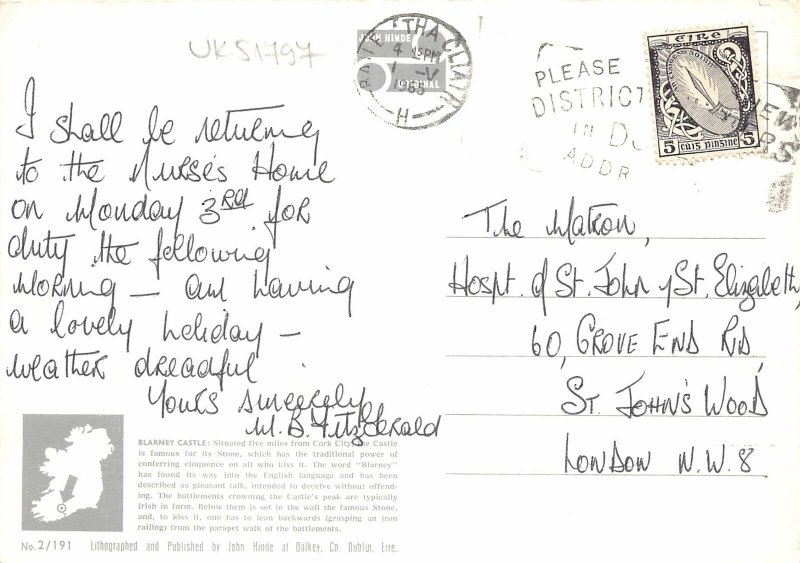 UKS1797
JOHN HINDE
ORIGINAL
BAILE ÁTHA CLIATH
4 15PM
1 - V
1965
H
PLEASE
DISTRICT
IN
ADDR
ÉIRE
5 CÚIG PINGINE 5
I shall be returning
to the Nurse's Home
on Monday 3RD for
duty the following
morning - am having
a lovely holiday -
weather dreadful
Yours sincerely
M. B. Fitzgerald
The Matron,
Hospt. of St. John & St. Elizabeth,
60, GROVE END RD
ST. JOHN'S WOOD
LONDON N.W. 8
BLARNEY CASTLE: Situated five miles from Cork City, the Castle
is famous for its Stone, which has the traditional power of
conferring eloquence on all who kiss it. The word "Blarney"
has found its way into the English language and has been
described as pleasant talk, intended to deceive without offend-
ing. The battlements crowning the Castle's peak are typically
Irish in form. Below them is set in the wall the famous Stone,
and, to kiss it, one has to lean backwards (grasping an iron
railing) from the parapet walk of the battlements.
No. 2/191 Lithographed and Published by John Hinde at Dalkey, Co. Dublin, Eire.